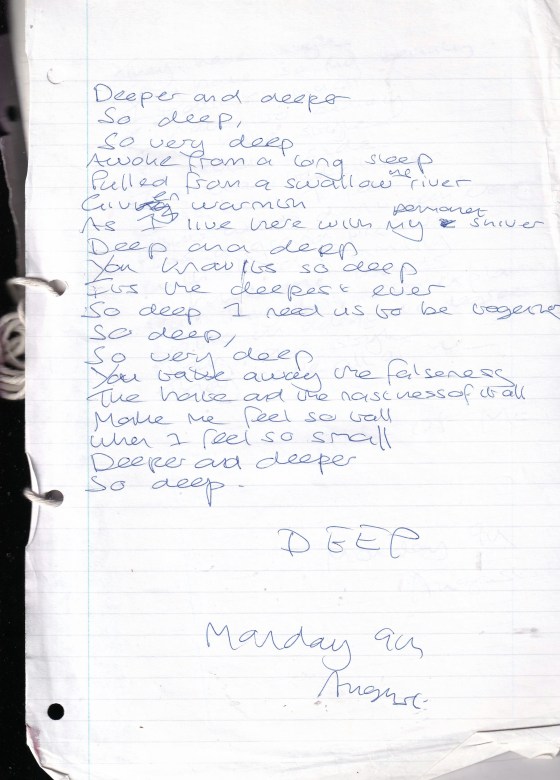 Deeper and deeper
So deep,
So very deep
Awoke from a long sleep
Pulled from a swallow the river
Given warmish
As I live here with my permanet shiver
Deep and deep
You know its so deep
Its the deepest ever
So deep I need us to be together
So deep,
So very deep
You take away the falseness
The hate and the nastness of it all
Make me feel so tall
When I feel so small
Deeper and deeper
So deep.
DEEP
Monday 9th
August.